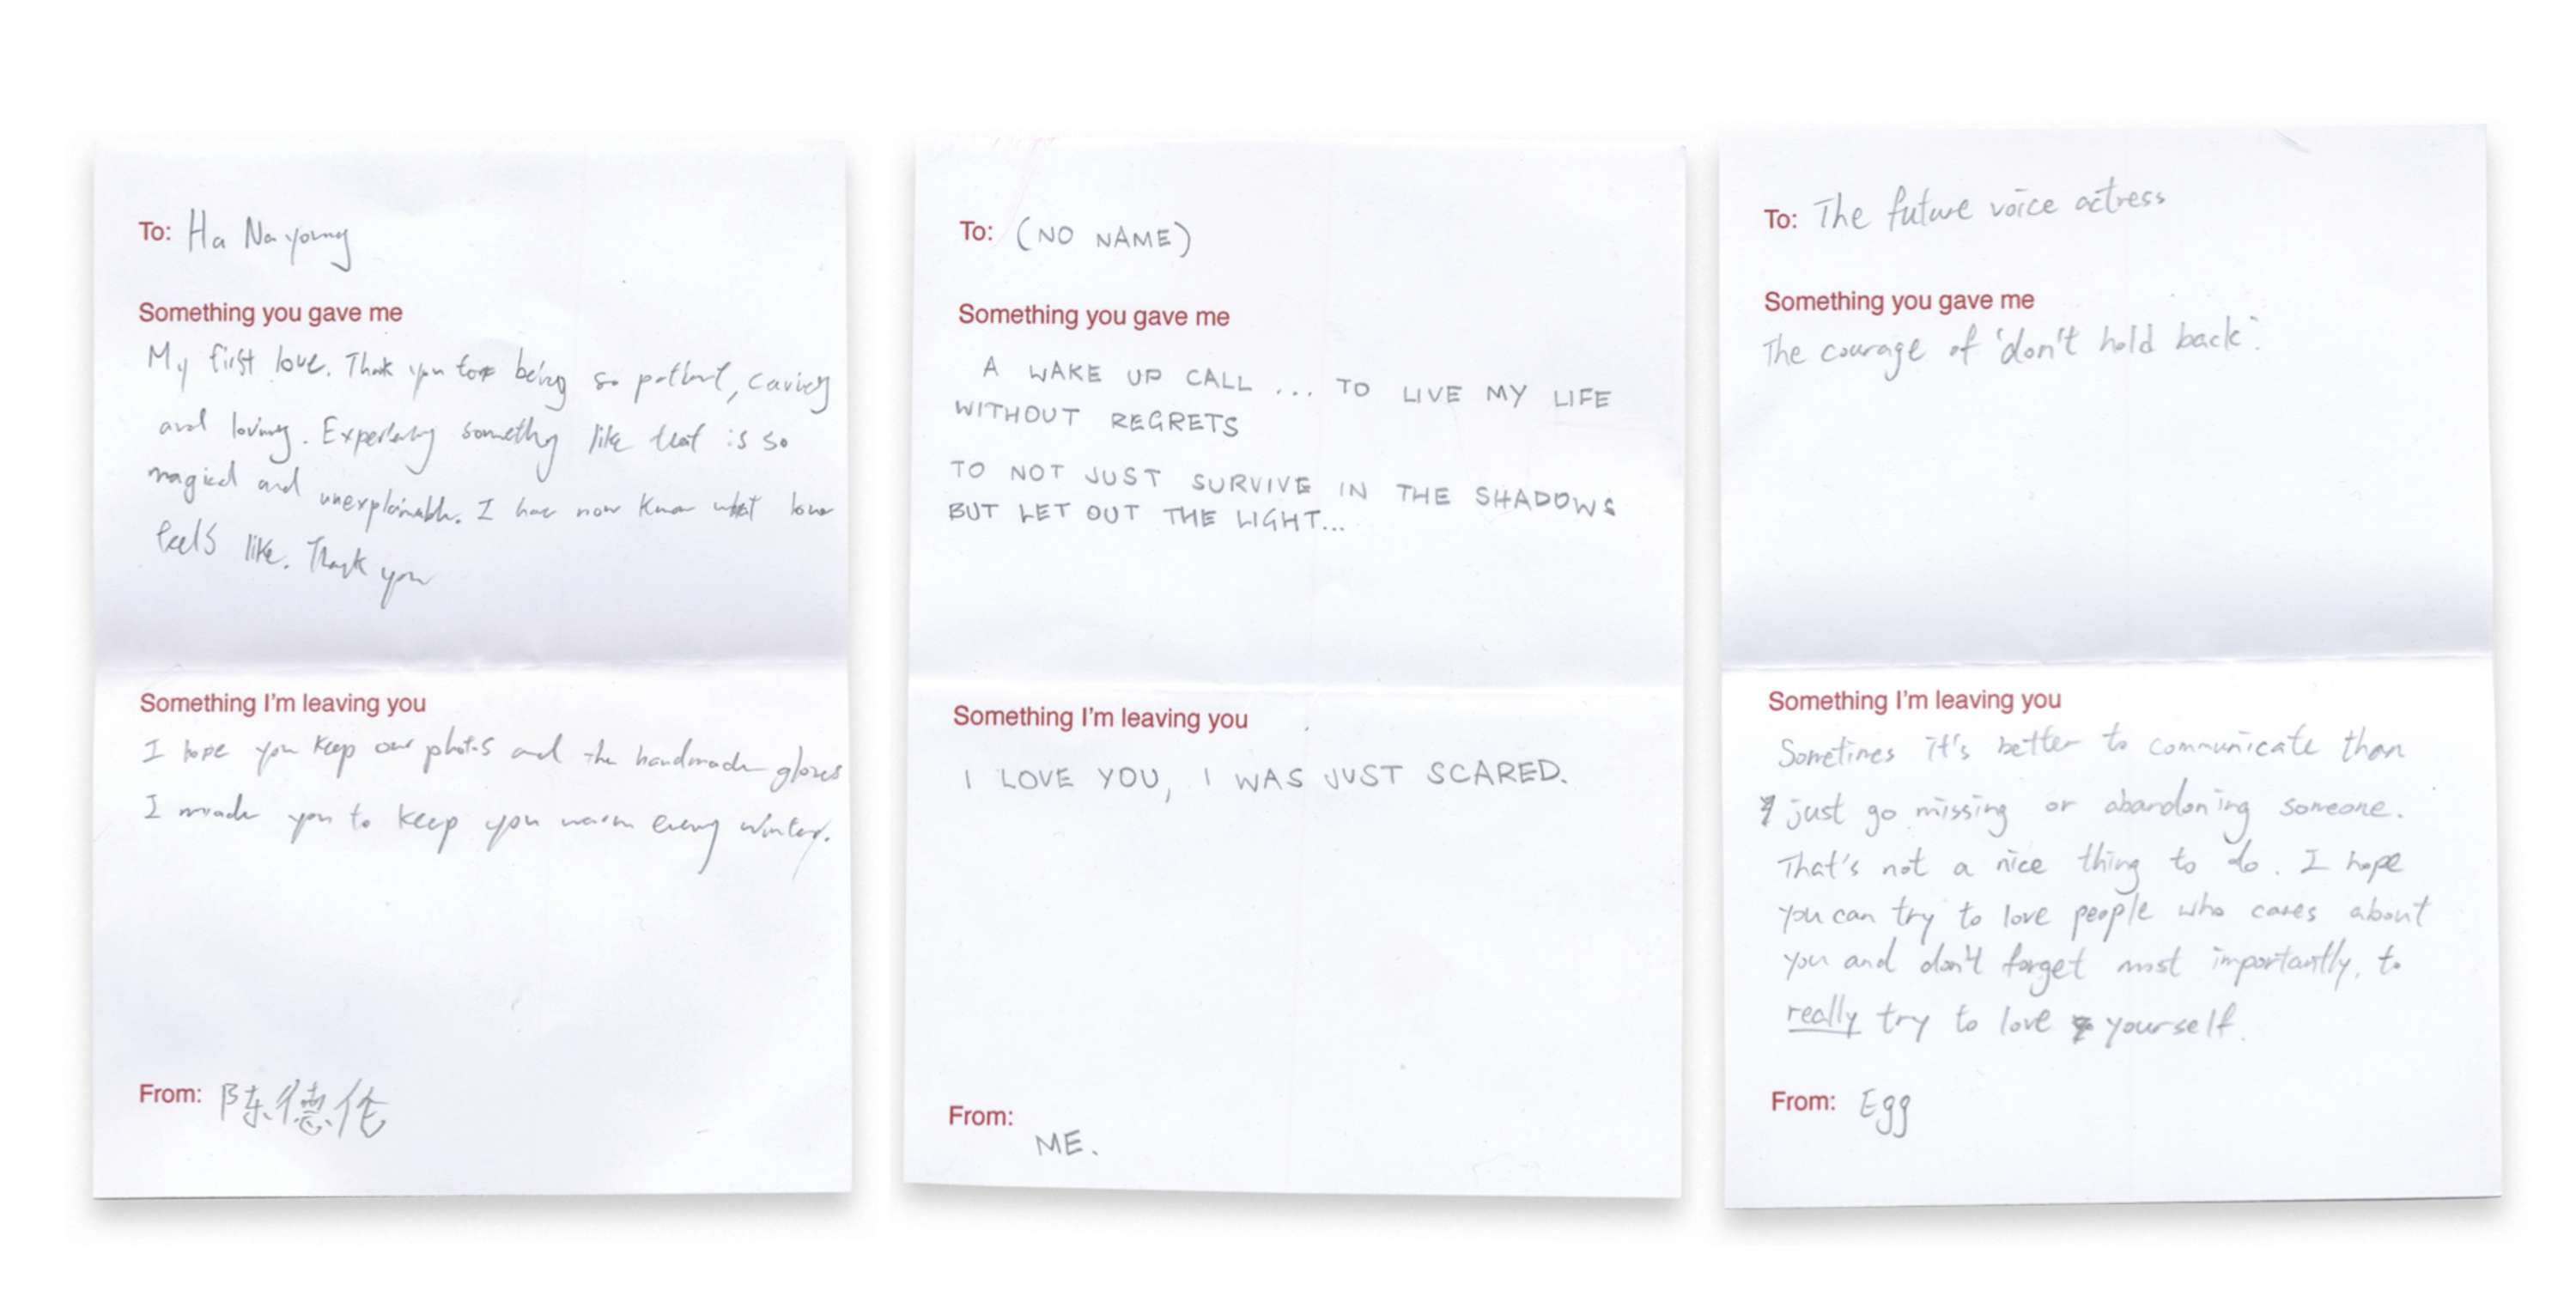 To: Ha Na young
Something you gave me
My first love. Thank you for being so patient, caring
and loving. Experiencing something like that is so
magical and unexplainable. I have now know what love
feels like. Thank you
Something I'm leaving you
I hope you keep our photos and the handmade gloves
I made you to keep you warm every winter.
From: 陈德伦
To: (NO NAME)
Something you gave me
A WAKE UP CALL ... TO LIVE MY LIFE
WITHOUT REGRETS
TO NOT JUST SURVIVE IN THE SHADOWS
BUT LET OUT THE LIGHT...
Something I'm leaving you
I LOVE YOU, I WAS JUST SCARED.
From:
ME.
To: The future voice actress
Something you gave me
The courage of 'don't hold back'.
Something I'm leaving you
Sometimes it's better to communicate than
just go missing or abandoning someone.
That's not a nice thing to do. I hope
you can try to love people who cares about
you and don't forget most importantly, to
really try to love yourself.
From: Egg